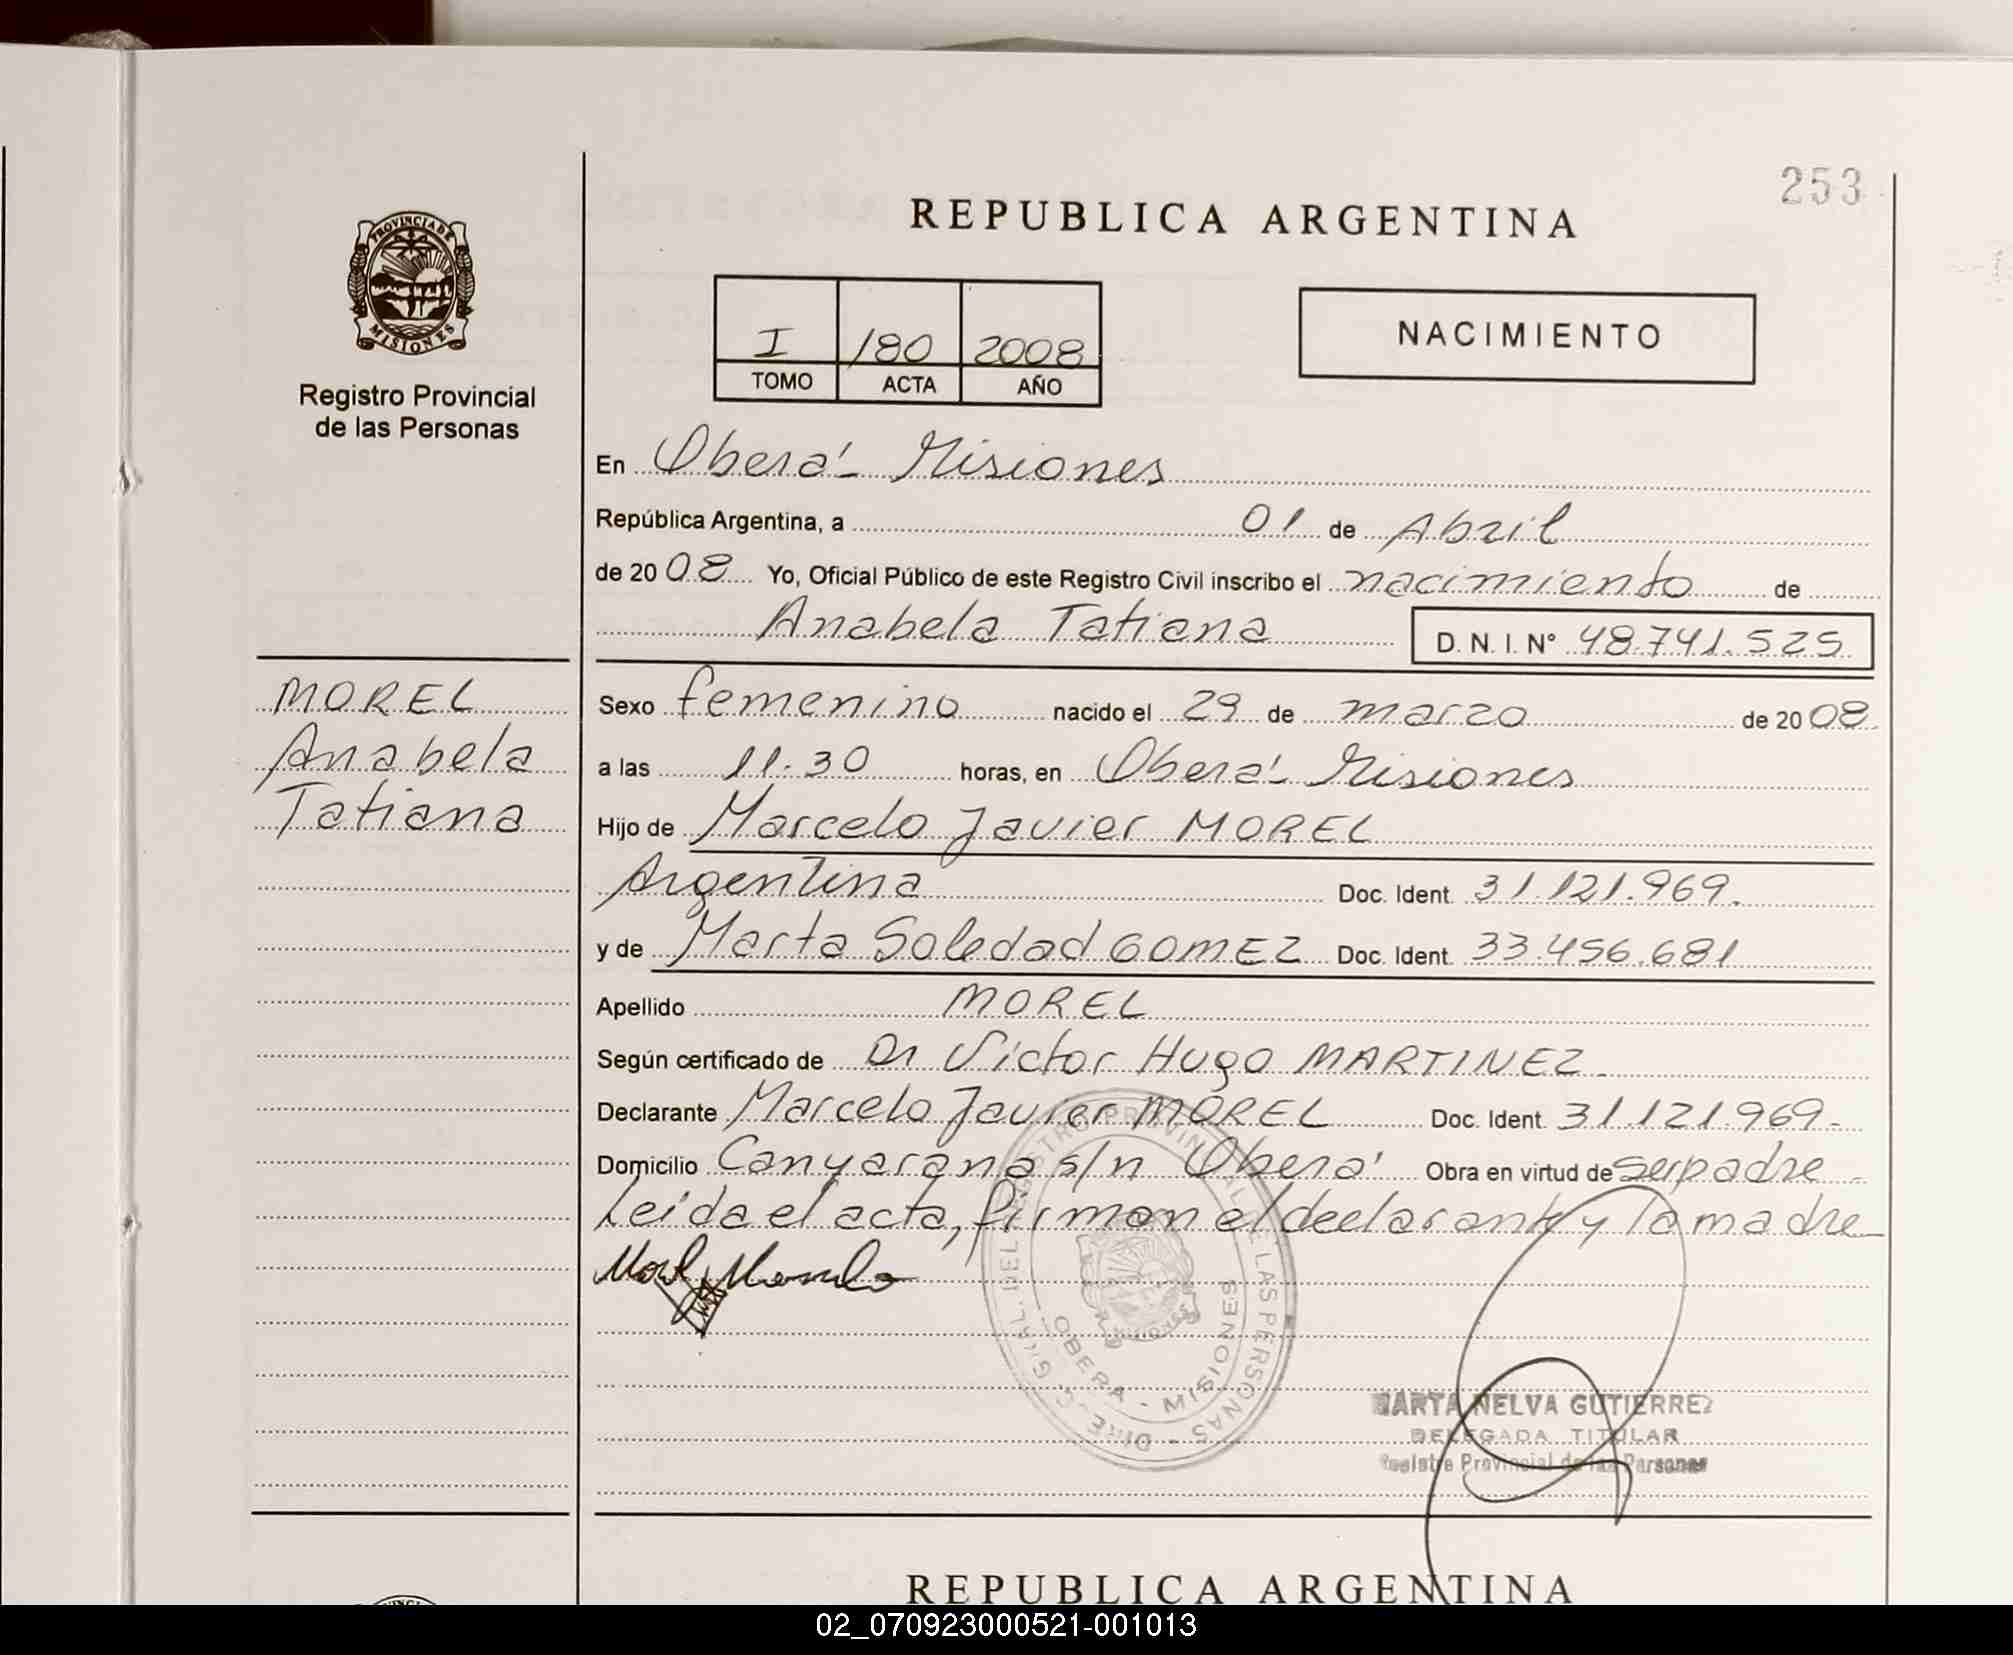 253
REPUBLICA ARGENTINA
PROVINCIA DE
MISIONES
Registro Provincial
de las Personas
I 180 2008
TOMO ACTA AÑO
NACIMIENTO
En Oberá - Misiones
República Argentina, a 01 de Abril
de 2008 Yo, Oficial Público de este Registro Civil inscribo el nacimiento de
Anabela Tatiana D. N. I. N° 48.741.525
MOREL
Anabela
Tatiana
Sexo femenino nacido el 29 de marzo de 2008
a las 11.30 horas, en Oberá - Misiones
Hijo de Marcelo Javier MOREL
Argentina Doc. Ident. 31.121.969.
y de Marta Soledad GOMEZ Doc. Ident. 33.456.681
Apellido MOREL
Según certificado de Dr Victor Hugo MARTINEZ.
Declarante Marcelo Javier MOREL Doc. Ident. 31.121.969.
Domicilio Canyarana s/n Oberá Obra en virtud de ser padre
Leida el acta, firman el declarante y la madre
Morel Marcelo
OBERA - MISIONES
MARTA NELVA GUTIERREZ
DELEGADA TITULAR
Registro Provincial de las Personas
REPUBLICA ARGENTINA
02_070923000521-001013